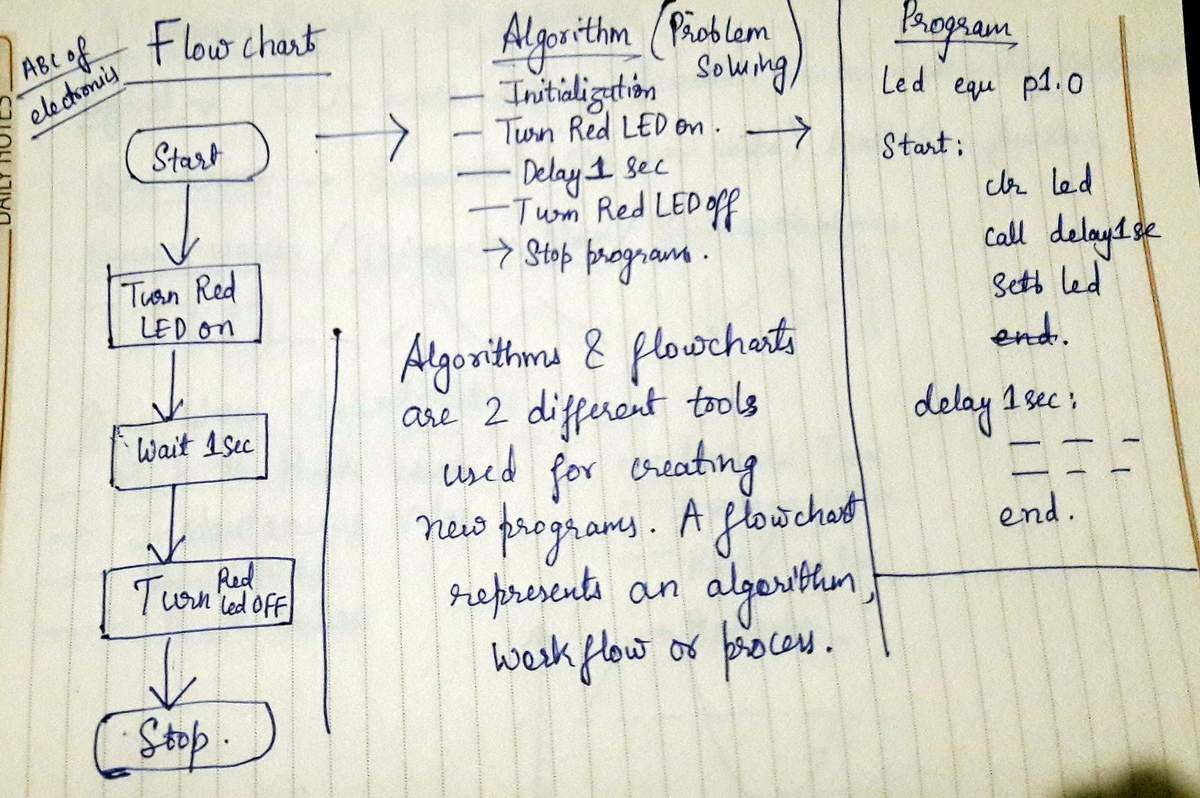 DAILY NOTES
ABC of
electronics
Flow chart
Start
Turn Red
LED on
Wait 1sec
Turn Red
led OFF
Stop.
Algorithm (Problem
Solving)
— Initialization
— Turn Red LED on.
— Delay 1 sec
— Turn Red LED off
→ Stop program.
Algorithms & flowcharts
are 2 different tools
used for creating
new programs. A flowchart
represents an algorithm,
workflow or process.
Program
Led equ p1.0
Start:
clr led
call delay1se
setb led
end.
delay 1sec:
— — —
— — —
end.